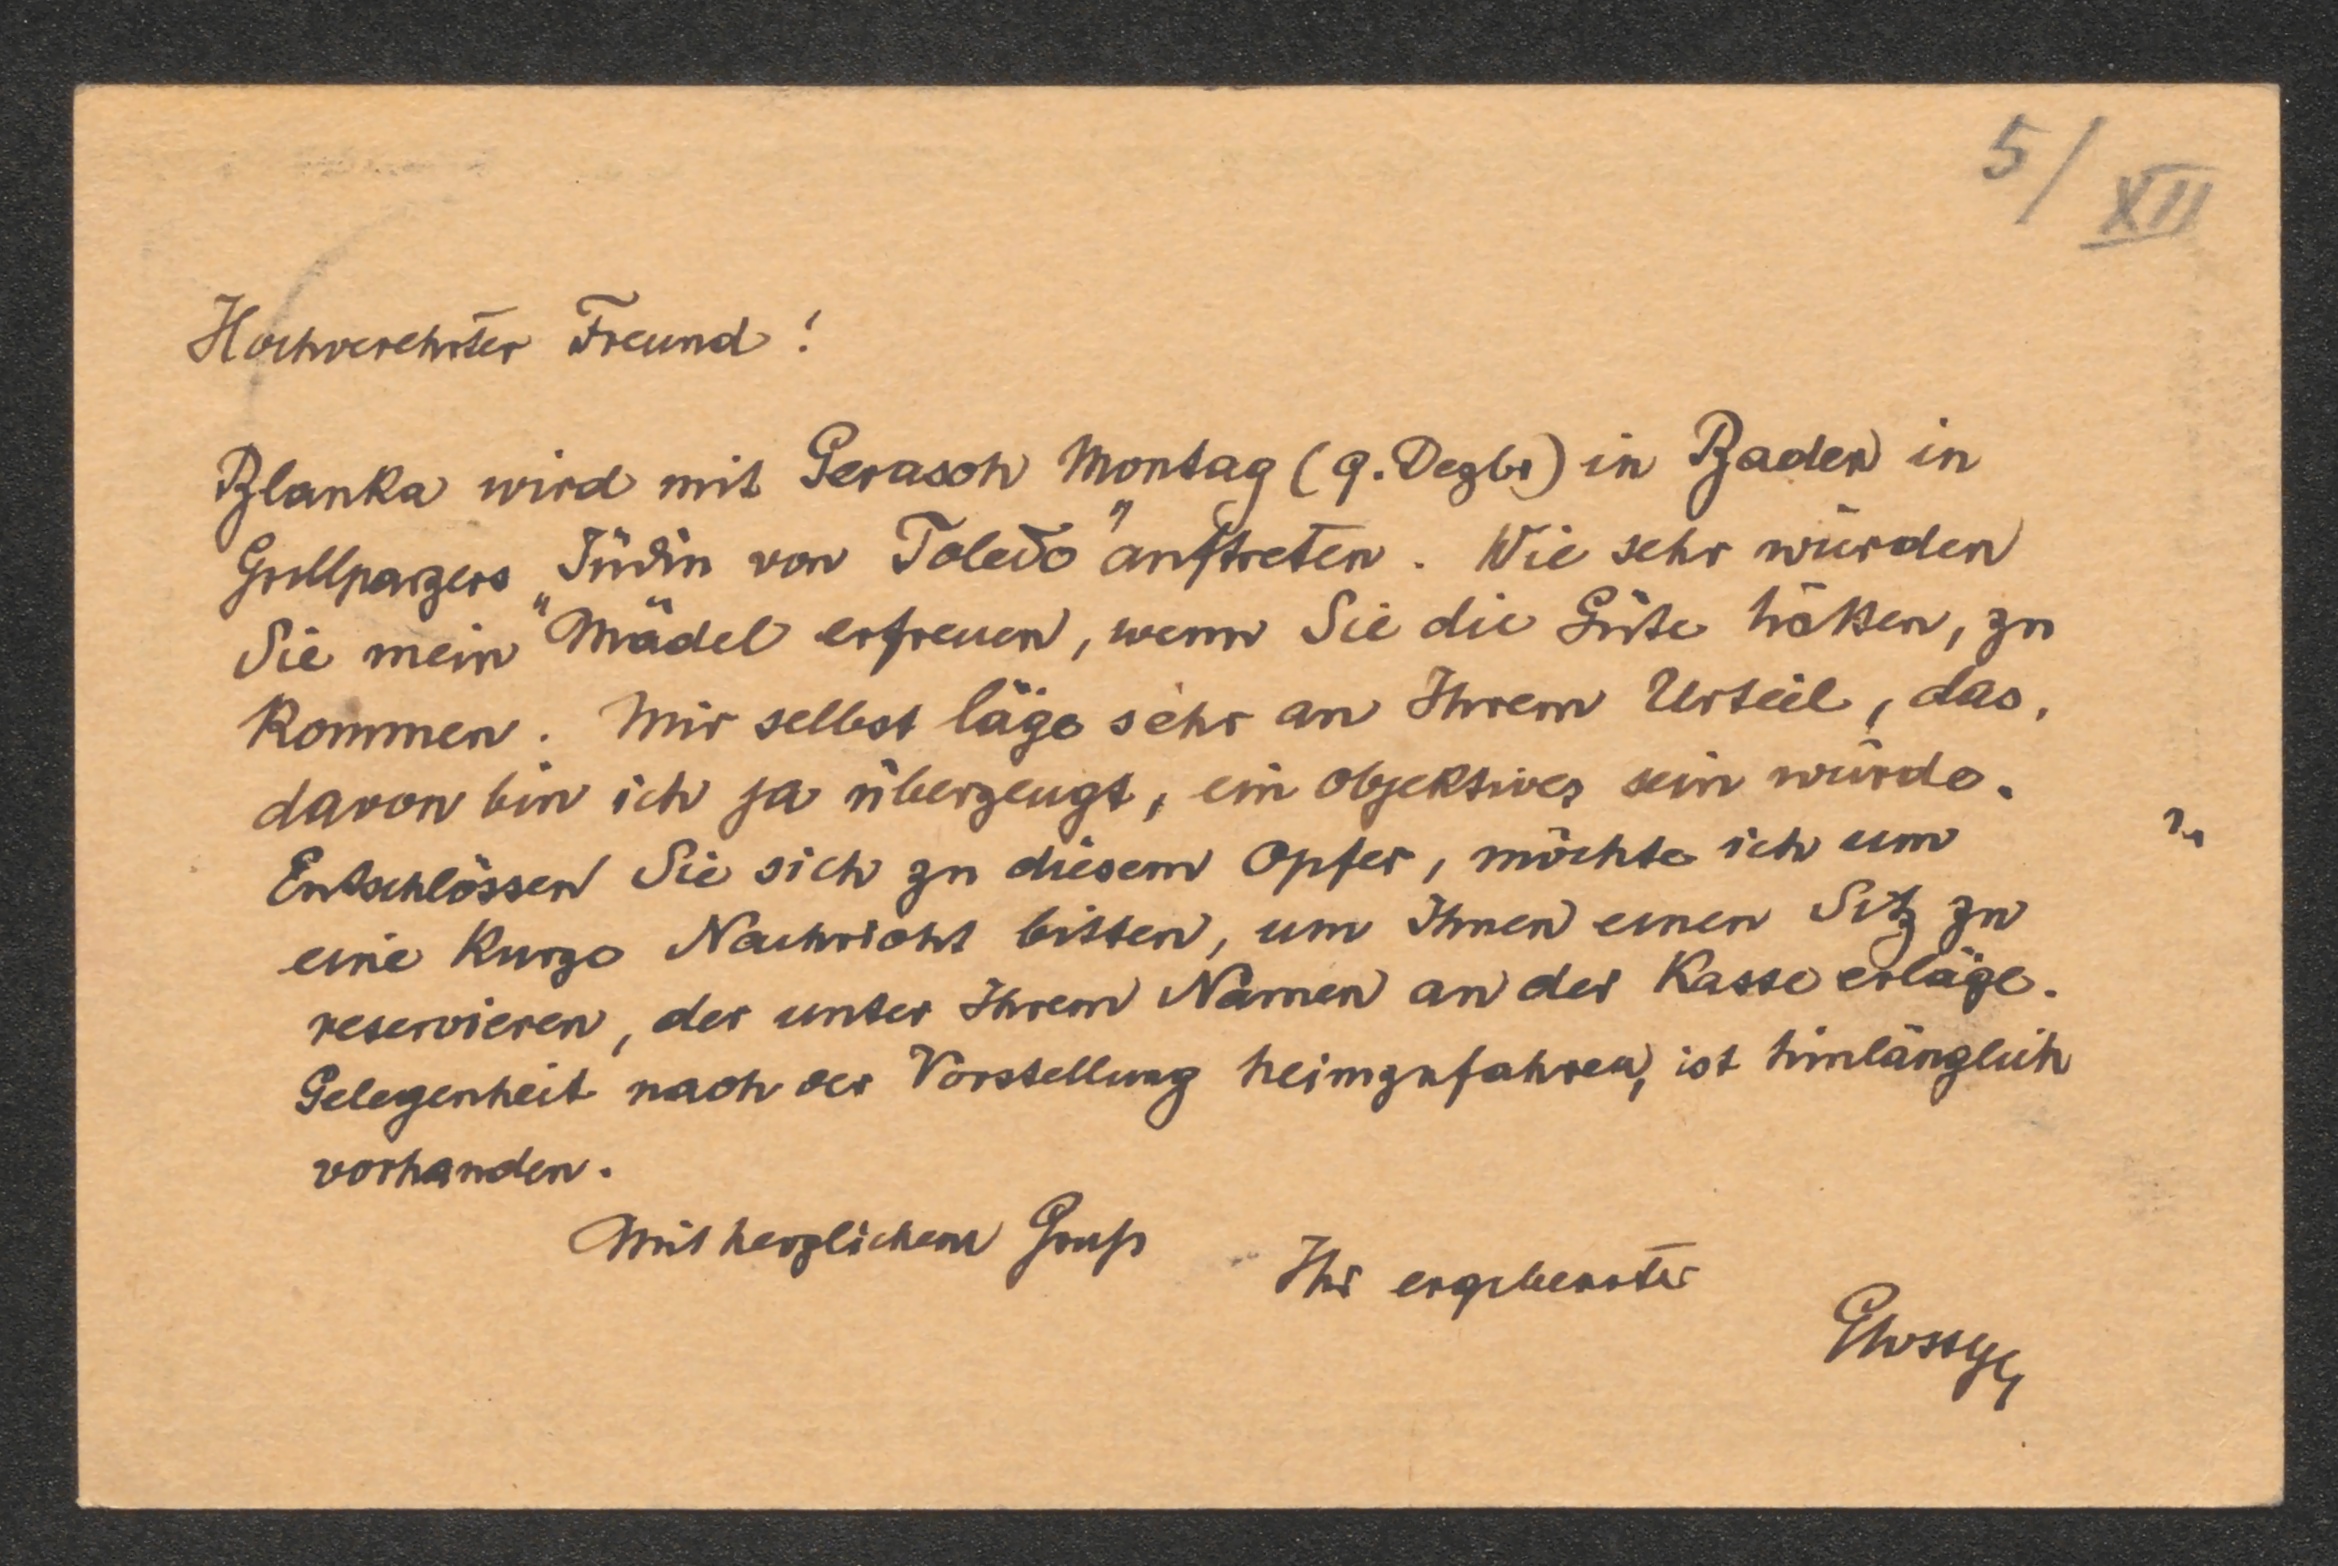 5/XII
Hochverehrter Freund!
Blanka wird mit Gerasch Montag (9. Dezbr) in Baden in
Grillparzers „Jüdin von Toledo" auftreten. Wie sehr würden
Sie mein Mädel erfreuen, wenn Sie die Güte hätten, zu
kommen. Mir selbst läge sehr an Ihrem Urteil, das,
davon bin ich ja überzeugt, ein objektives sein würde.
Entschlössen Sie sich zu diesem Opfer, möchte ich um
eine kurze Nachricht bitten, um Ihnen einen Sitz zu
reservieren, der unter Ihrem Namen an der Kasse erläge.
Gelegenheit nach der Vorstellung heimzufahren, ist hinlänglich
vorhanden.
Mit herzlichem Gruß
Ihr ergebenster
Glossy